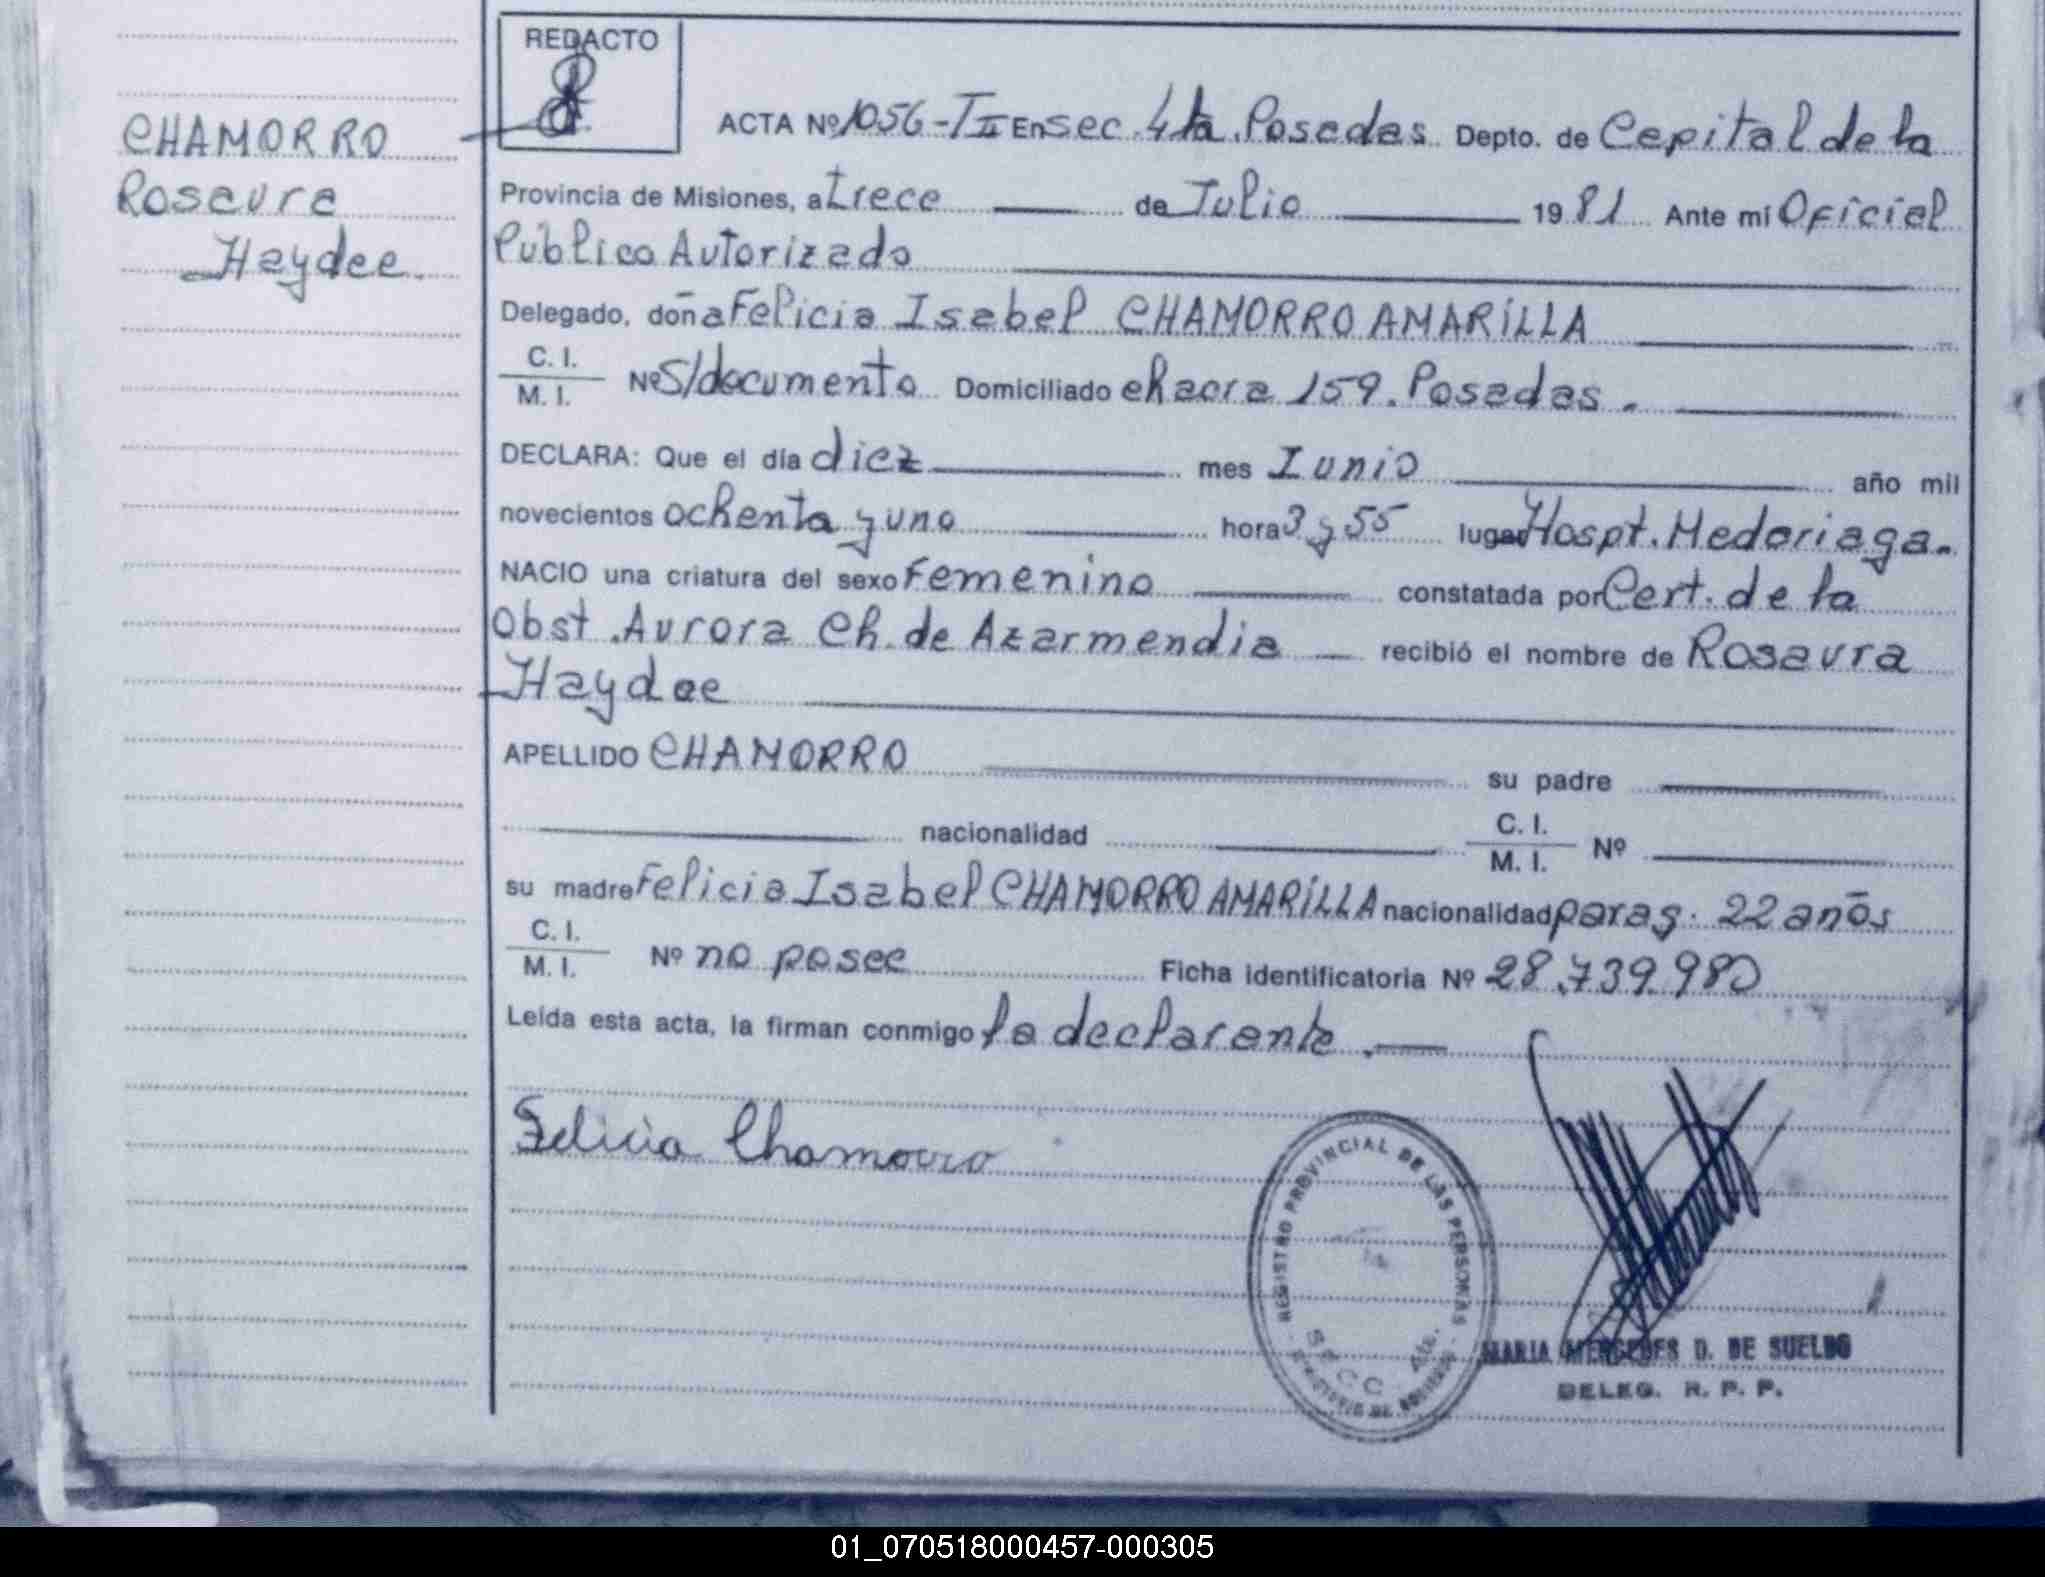 REDACTO
CHAMORRO
Rosaura
Haydee.
ACTA Nº 1056-T II En sec. 4ta. Posadas. Depto. de Capital de la
Provincia de Misiones, a trece de Julio 1981 Ante mí Oficial
Público Autorizado
Delegado, doña Felicia Isabel CHAMORRO AMARILLA
C. I.
M. I. Nº S/documento Domiciliado chacra 159. Posadas.
DECLARA: Que el día diez mes Junio año mil
novecientos ochenta y uno hora 3 y 55 lugar Hospt. Madariaga.
NACIO una criatura del sexo Femenino constatada por Cert. de la
Obst. Aurora Ch. de Azarmendia recibió el nombre de Rosaura
Haydee
APELLIDO CHAMORRO su padre
nacionalidad C. I.
M. I. Nº
su madre Felicia Isabel CHAMORRO AMARILLA nacionalidad parag. 22 años
C. I.
M. I. Nº no posee Ficha identificatoria Nº 28.739.980
Leída esta acta, la firman conmigo la declarante.
Felicia Chamorro
REGISTRO PROVINCIAL DE LAS PERSONAS
MARIA MERCEDES D. DE SUELDO
DELEG. R. P. P.
01_070518000457-000305